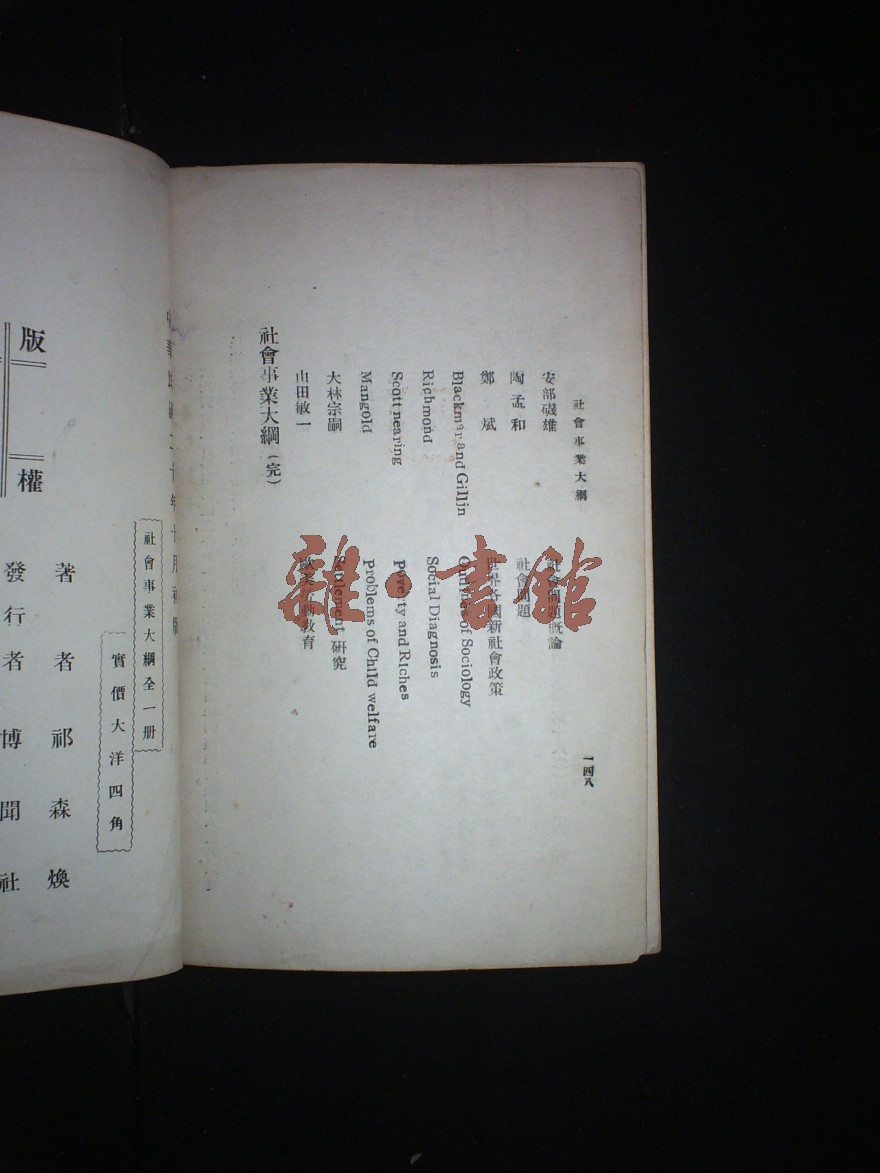 社會事業大綱
一四八
安部磯雄 社會問題概論
陶孟和 社會問題
鄭斌 世界各國新社會政策
Blackmar and Gillin Outlines of Sociology
Richmond Social Diagnosis
Scott nearing Poverty and Riches
Mangold Problems of Child welfare
大林宗嗣 Settlement 研究
山田敏一 教育
社會事業大綱(完)
社會事業大綱全一册
實價大洋四角
著者祁森煥
發行者博聞社
版權
雜·書館